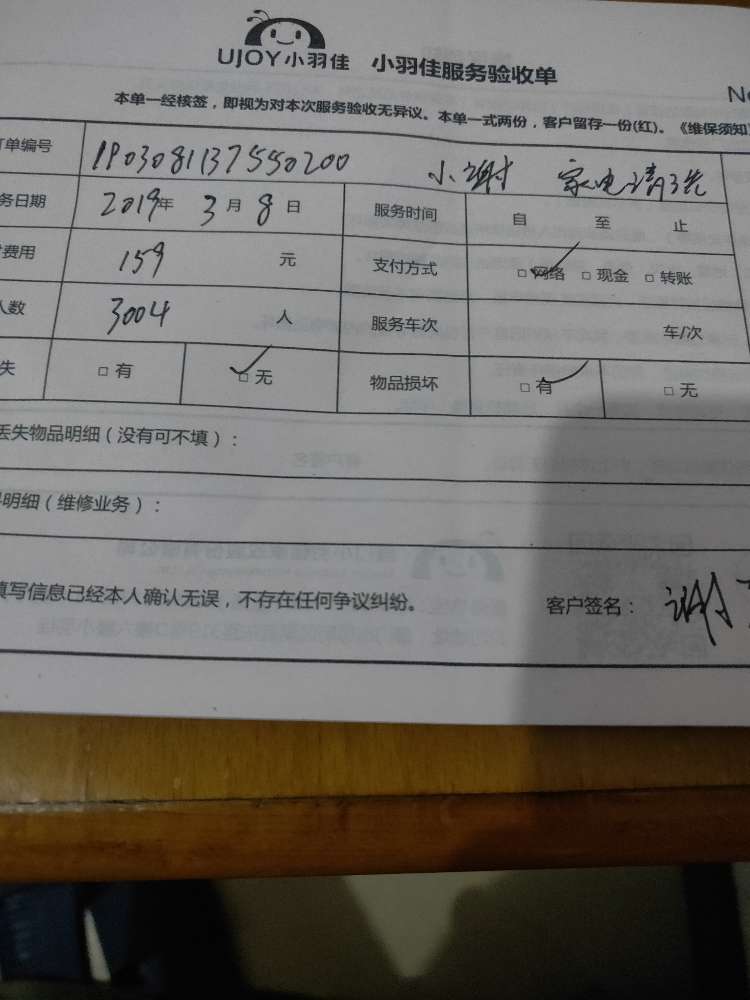 UJOY小羽佳 小羽佳服务验收单
No
本单一经核签，即视为对本次服务验收无异议。本单一式两份，客户留存一份(红)。《维保须知》
单编号 190308113755550200 小谢 家电清洗
务日期 2019年 3月8日 服务时间 自 至 止
费用 159 元 支付方式 □网络 □现金 □转账
人数 3004 人 服务车次 车/次
失 □有 □无 物品损坏 □有 □无
丢失物品明细（没有可不填）：
明细（维修业务）：
填写信息已经本人确认无误，不存在任何争议纠纷。 客户签名： 谢